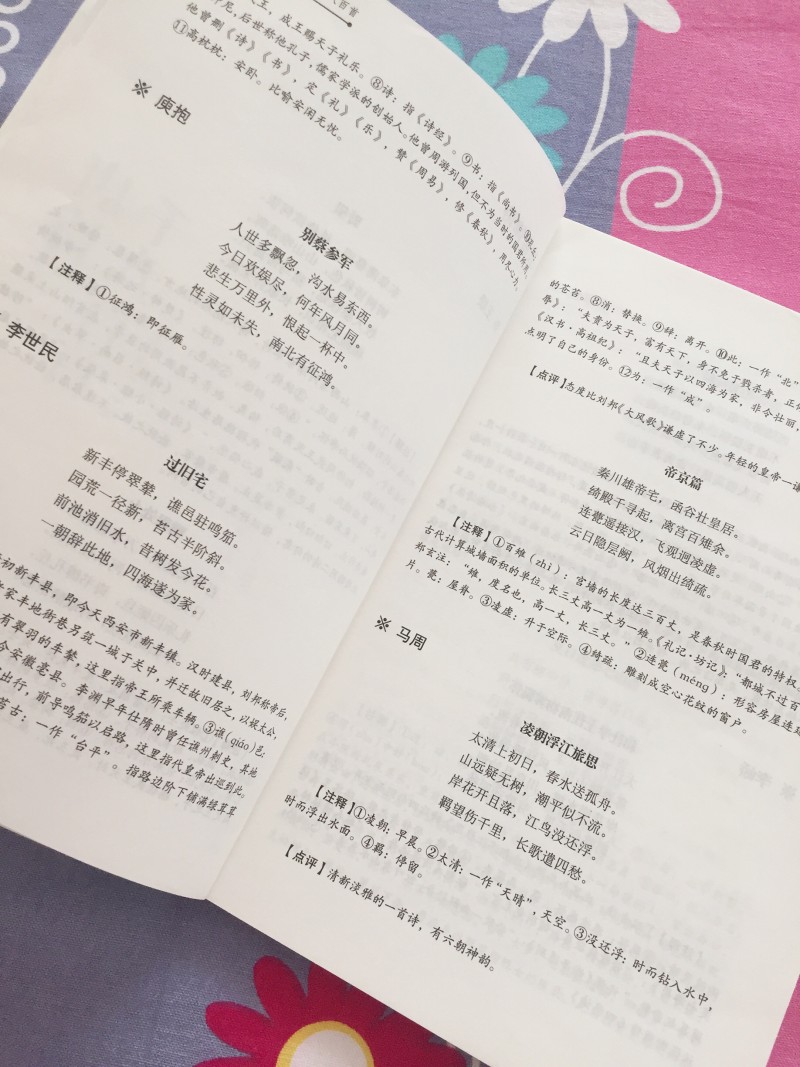 八百首
王，成王赐天子礼乐。⑧诗：指《诗经》。⑨书：指《尚书》。⑩
尼，后世称他孔子，儒家学派的创始人。他曾周游列国，但不为当时的国君所
他曾删《诗》《书》，定《礼》《乐》，赞《周易》，修《春秋》，用尽心力。
⑪高枕枕：安卧。比喻安闲无忧。
※ 庾抱
别蔡参军
人世多飘忽，沟水易东西。
今日欢娱尽，何年风月同。
悲生万里外，恨起一杯中。
性灵如未失，南北有征鸿。
【注释】①征鸿：即征雁。
李世民
过旧宅
新丰停翠辇，谯邑驻鸣笳。
园荒一径新，苔古半阶斜。
前池消旧水，昔树发今花。
一朝辞此地，四海遂为家。
初新丰县，即今天西安市新丰镇。汉时建县，刘邦称帝后，
家丰地街巷另筑一城于关中，并迁故旧居之，以娱太公，
有翠羽的车辇，这里指帝王所乘车辆。③谯(qiáo)邑：
今安徽亳县。李渊早年仕隋时曾任谯州刺史，其地
出行，前导鸣笳以启路，这里指代皇帝出巡到此。
苔古：一作“台平”。指路边阶下铺满绿茸茸
的苍苔。⑧消：替换。⑨辞：离开。⑩此：一作“北”
辱》：“夫贵为天子，富有天下，身不免于戮杀者，正
《汉书·高祖纪》：“且夫天子以四海为家，非令壮丽，
点明了自己的身份。⑫为：一作“成”。
【点评】态度比刘邦《大风歌》谦虚了不少。年轻的皇帝一
帝京篇
秦川雄帝宅，函谷壮皇居。
绮殿千寻起，离宫百雉余。
连甍遥接汉，飞观迥凌虚。
云日隐层阙，风烟出绮疏。
【注释】①百雉(zhì)：宫墙的长度达三百丈，是春秋时国君的特权
古代计算城墙面积的单位。长三丈高一丈为一雉。《礼记·坊记》：“都城不过百
郑玄注：“雉，度名也，高一丈，长三丈。”②连甍(méng)：形容房屋连延
片。甍：屋脊。③凌虚：升于空际。④绮疏：雕刻成空心花纹的窗户。
※ 马周
凌朝浮江旅思
太清上初日，春水送孤舟。
山远疑无树，潮平似不流。
岸花开且落，江鸟没还浮。
羁望伤千里，长歌遣四愁。
【注释】①凌朝：早晨。②太清：一作“天晴”，天空。③没还浮：时而钻入水中，
时而浮出水面。④羁：停留。
【点评】清新淡雅的一首诗，有六朝神韵。